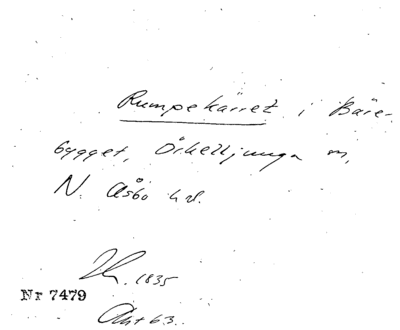 Rumpekärret i Bäre-
bygget, Örkelljunga m,
N. Åsbo hd.
1835
Nr 7479
Akt 63.